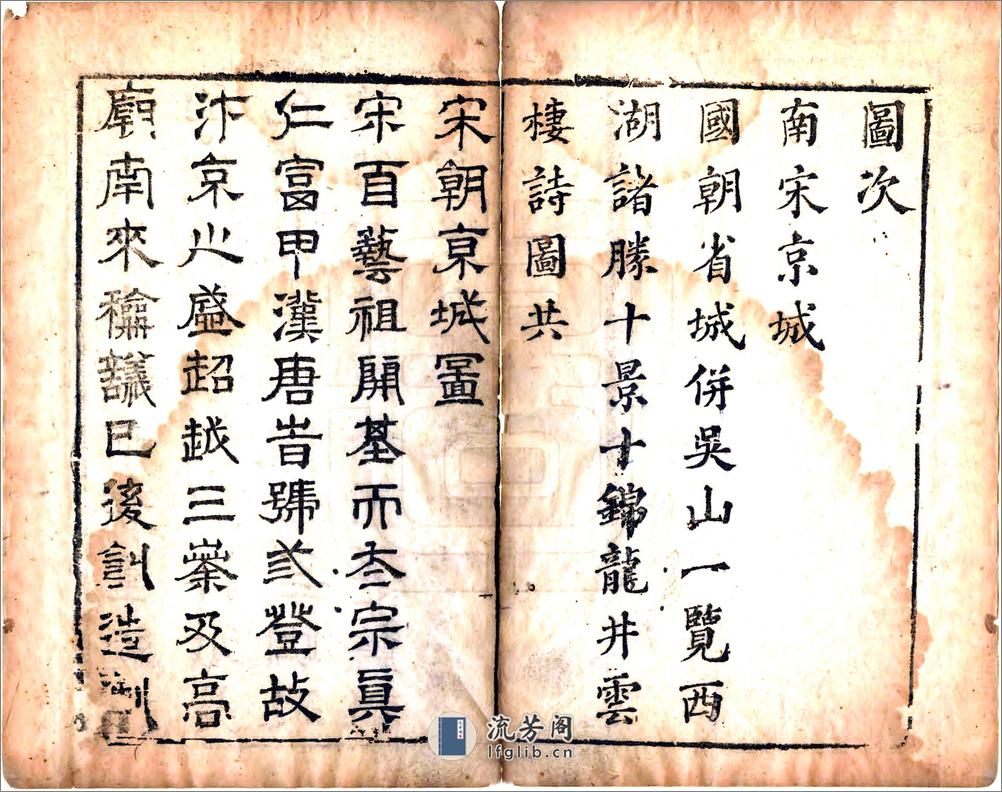 圖次
南宋京城
國朝省城併吳山一覽西
湖諸勝十景十錦龍井雲
棲詩圖共
宋朝京城啚
宋百藝祖開基而太宗真
仁富甲漢唐昔號弍登故
汴京之盛超越三及高
廟南來議已後創造
流芳阁
lfglib.cn